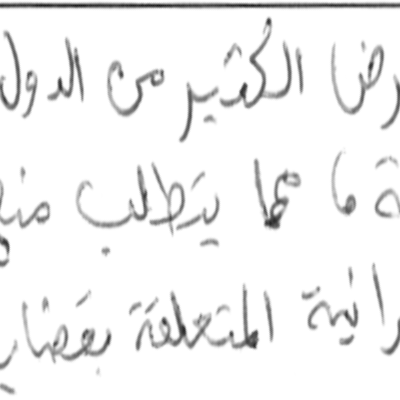 رض الكثير من الدول
ة ما مما يتطلب منه
رانية المتعلقة بقضاي